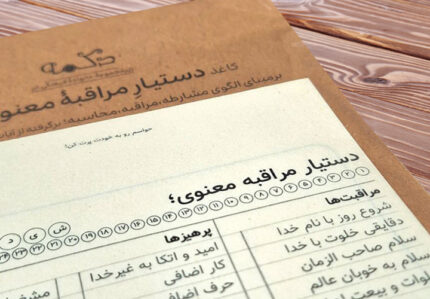 دکمه
کاغذ دستیارِ مراقبهٔ معنوی
برمبنای الگوی مشارطه، مراقبه، محاسبه؛ برگرفته از
حواسم رو به خودت پرت کن!
دستیار مراقبه معنوی؛
۱ ۲ ۳ ۴ ۵ ۶ ۷ ۸ ۹ ۱۰ ۱۱ ۱۲ ۱۳ ۱۴ ۱۵ ۱۶ ۱۷ ۱۸ ۱۹ ۲۰ ۲۱ ۲۲ ۲۳ ۲۴
ش ی د
مراقبت‌ها
شروع روز با نام خدا
دقایقی خلوت با خدا
سلام صاحب الزمان
سلام به خوبان عالم
پرهیزها
امید و اتکا به غیرخدا
کار اضافی
حرف اضافی